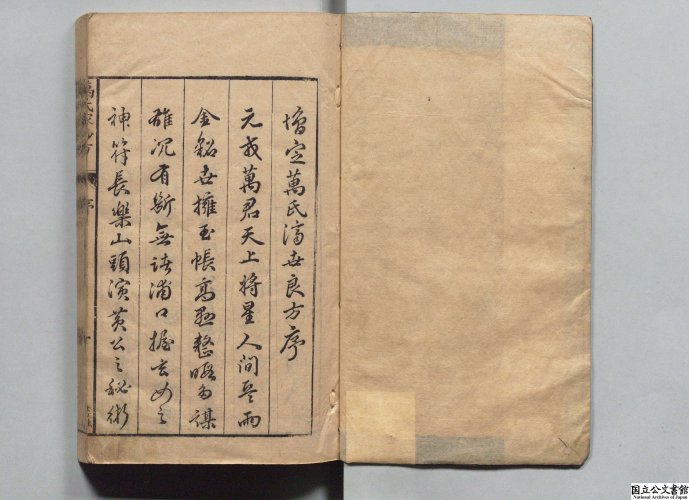 增定萬氏濟世良方序
元我萬君天上將星人間兵雨
金韜世擁玉帳高懸整暇多謀
雄沉有斷無諸浦口握玄女之
神符長樂山頭演黃公之秘術
萬氏家抄方
序
国立公文書館
National Archives of Japan